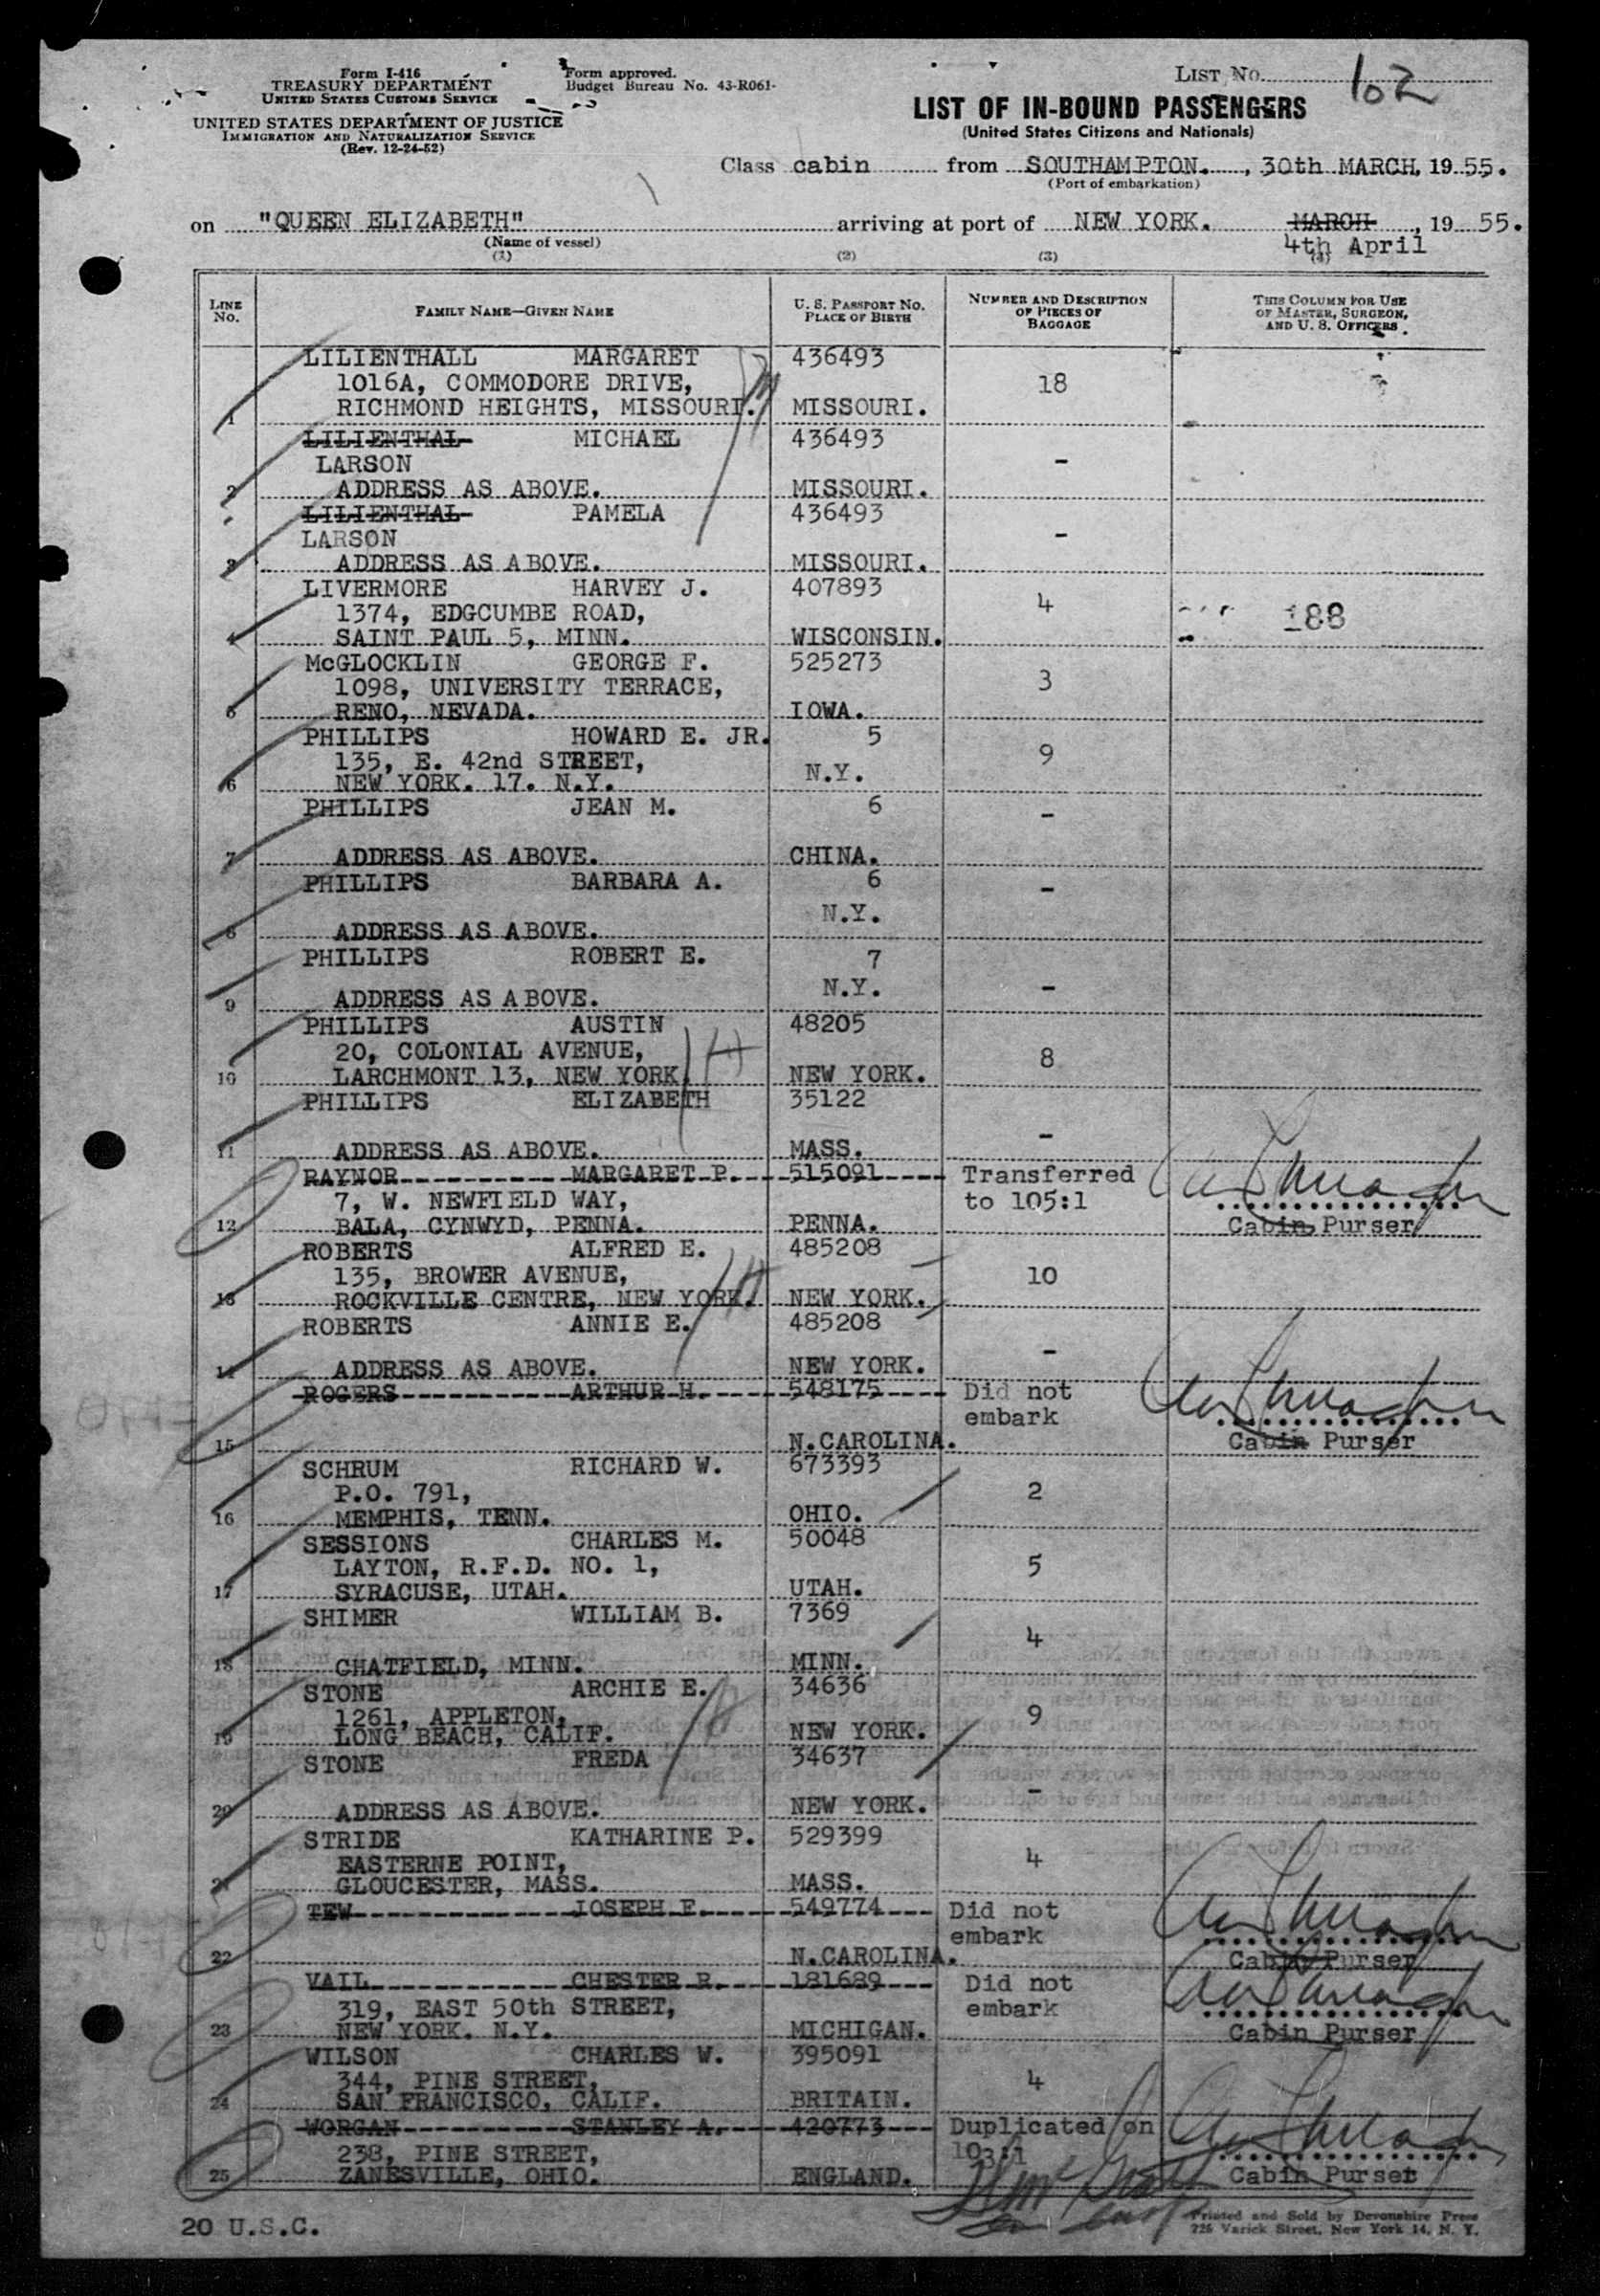 Form I-416
TREASURY DEPARTMENT
UNITED STATES CUSTOMS SERVICE
UNITED STATES DEPARTMENT OF JUSTICE
IMMIGRATION AND NATURALIZATION SERVICE
(Rev. 12-24-52)
Form approved.
Budget Bureau No. 43-R061-
LIST NO. 102
LIST OF IN-BOUND PASSENGERS
(United States Citizens and Nationals)
Class cabin from SOUTHAMPTON. , 30th MARCH, 1955.
(Port of embarkation)
on "QUEEN ELIZABETH" arriving at port of NEW YORK. MARCH , 19 55.
(Name of vessel) 4th April
(1) (2) (3) (4)
LINE No. FAMILY NAME—GIVEN NAME U. S. PASSPORT NO. PLACE OF BIRTH NUMBER AND DESCRIPTION OF PIECES OF BAGGAGE THIS COLUMN FOR USE OF MASTER, SURGEON, AND U. S. OFFICERS
LILIENTHALL MARGARET 436493
1016A, COMMODORE DRIVE, 18
1 RICHMOND HEIGHTS, MISSOURI. MISSOURI.
LILIENTHAL MICHAEL 436493
LARSON -
2 ADDRESS AS ABOVE. MISSOURI.
LILIENTHAL PAMELA 436493
LARSON -
3 ADDRESS AS ABOVE. MISSOURI.
LIVERMORE HARVEY J. 407893
1374, EDGCUMBE ROAD, 4 188
4 SAINT PAUL 5, MINN. WISCONSIN.
McGLOCKLIN GEORGE F. 525273
1098, UNIVERSITY TERRACE, 3
5 RENO, NEVADA. IOWA.
PHILLIPS HOWARD E. JR. 5
135, E. 42nd STREET, N.Y. 9
6 NEW YORK. 17. N.Y.
PHILLIPS JEAN M. 6
-
7 ADDRESS AS ABOVE. CHINA.
PHILLIPS BARBARA A. 6
N.Y. -
8 ADDRESS AS ABOVE.
PHILLIPS ROBERT E. 7
N.Y. -
9 ADDRESS AS ABOVE.
PHILLIPS AUSTIN 48205
20, COLONIAL AVENUE, 8
10 LARCHMONT 13, NEW YORK. NEW YORK.
PHILLIPS ELIZABETH 35122
-
11 ADDRESS AS ABOVE. MASS.
RAYNOR MARGARET P. 515091 Transferred
7, W. NEWFIELD WAY, to 105:1
12 BALA, CYNWYD, PENNA. PENNA. Cabin Purser
ROBERTS ALFRED E. 485208
135, BROWER AVENUE, 10
13 ROCKVILLE CENTRE, NEW YORK. NEW YORK.
ROBERTS ANNIE E. 485208
-
14 ADDRESS AS ABOVE. NEW YORK.
ROGERS ARTHUR H. 548175 Did not
embark
15 N.CAROLINA. Cabin Purser
SCHRUM RICHARD W. 673393
P.O. 791, 2
16 MEMPHIS, TENN. OHIO.
SESSIONS CHARLES M. 50048
LAYTON, R.F.D. NO. 1, 5
17 SYRACUSE, UTAH. UTAH.
SHIMER WILLIAM B. 7369
4
18 CHATFIELD, MINN. MINN.
STONE ARCHIE E. 34636
1261, APPLETON, 9
19 LONG BEACH, CALIF. NEW YORK.
STONE FREDA 34637
-
20 ADDRESS AS ABOVE. NEW YORK.
STRIDE KATHARINE P. 529399
EASTERNE POINT, 4
21 GLOUCESTER, MASS. MASS.
TEW JOSEPH E. 549774 Did not
embark
22 N.CAROLINA. Cabin Purser
VAIL CHESTER R. 181689 Did not
319, EAST 50th STREET, embark
23 NEW YORK. N.Y. MICHIGAN. Cabin Purser
WILSON CHARLES W. 395091
344, PINE STREET, 4
24 SAN FRANCISCO, CALIF. BRITAIN.
WORGAN STANLEY A. 420773 Duplicated on
238, PINE STREET, 103:1
25 ZANESVILLE, OHIO. ENGLAND. Cabin Purser
20 U.S.C.
Printed and Sold by Devonshire Press
225 Varick Street, New York 14, N. Y.